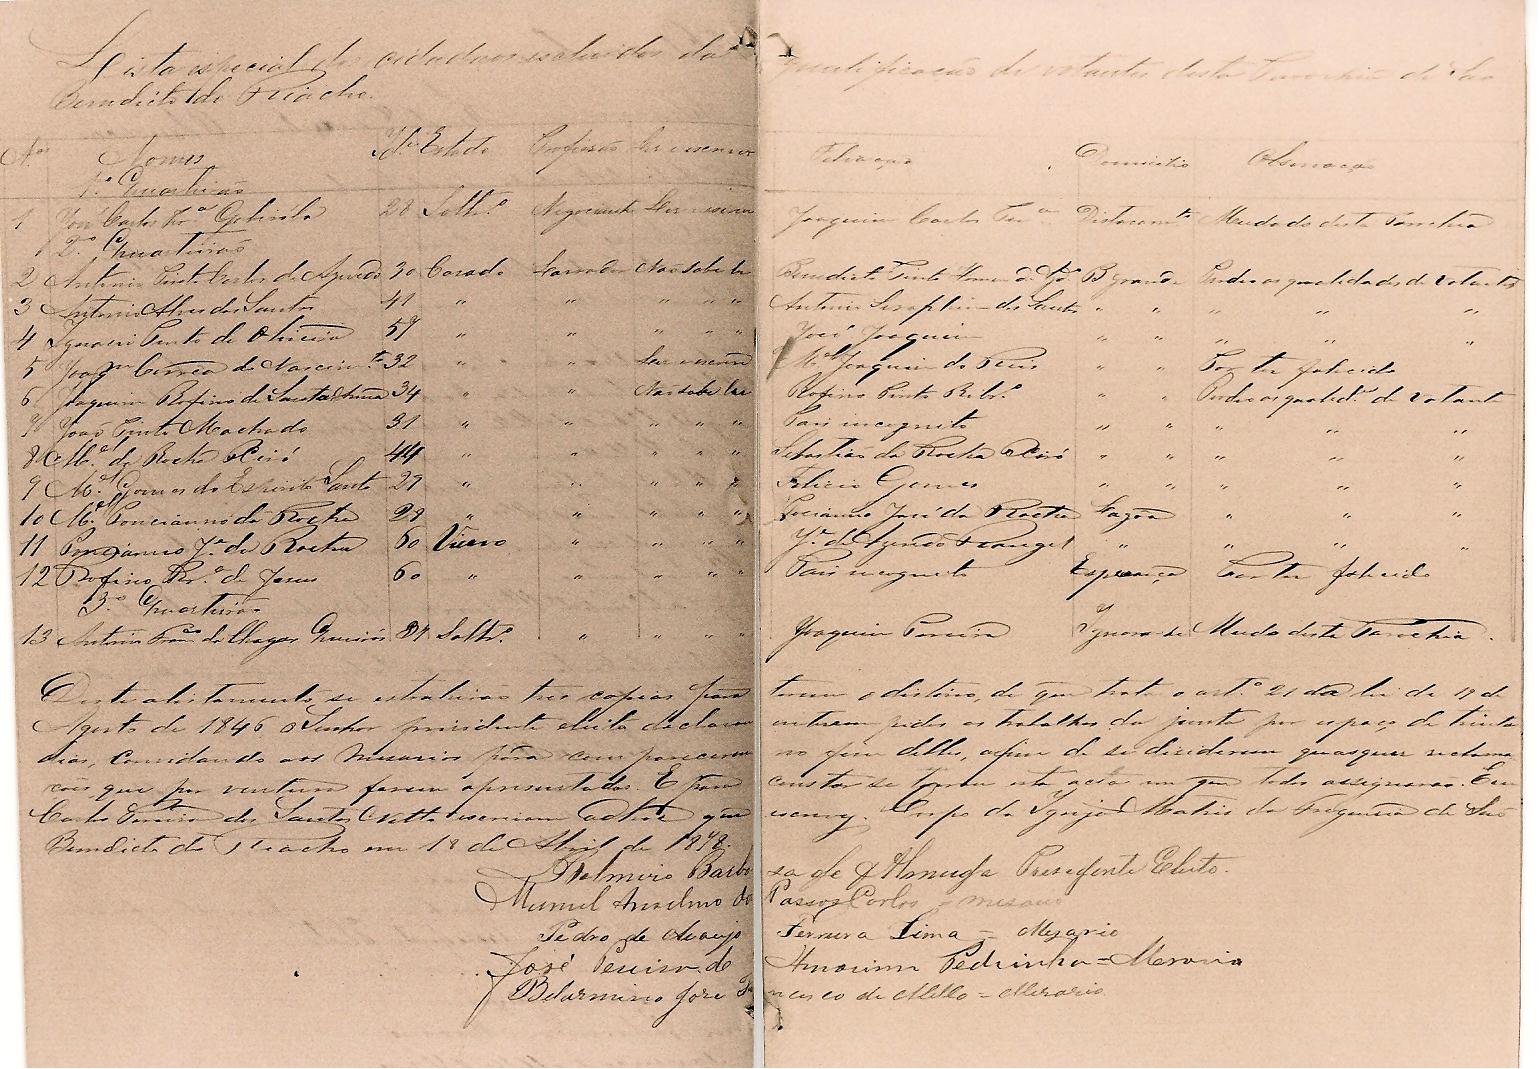 Lista especial dos cidadaos excluidos da qualificação de votantes desta Parochia de São
Benedicto do Riacho.
Nos Nomes Ide Estado Profissão Ler e escrever Filiação Domicilio Observação
1.º Quarteirão
1 José Carlos Frª 28 Soltrº Negociante Ler e escrever Joaquim Carlos Ferª Destacamto Mudado desta Parochia
2.º Quarteirão
2 Antonio Pinto Carlos de Azevedo 30 Casado Lavrador Não sabe ler Benedicto Pinto B grande Perdeo as qualidades de votante
3 Antonio Alves dos Santos 41 " " " " " Antonio Serafhim dos Santos " " " " "
4 Ignacio Pinto de Oliveira 59 " " " " " José Joaquim " " " " "
5 Joaqm Corrêa do Nascimto 32 " " Ler e escrever Mel Joaquim de " " Por ter falecido
6 Joaquim Rofino de Santa Anna 34 " " Não sabe ler Rofino Pinto Ribrº " " Perdeo as qualides de votante
7 João Pinto Machado 31 " " " " " Pai incognito " " " " "
8 Mel da Rocha 44 " " " " " Sebastião da Rocha " " " " "
9 Mel Gomes do Espirito Santo 29 " " " " " Felicio Gomes " " " " "
10 Mel Poncianno da Rocha 29 " " " " " Poncianno José da Rocha Lagôa " " "
11 Poncianno Jé da Rocha 60 Viuvo " " " " Jé de Azevedo Rangel " " " "
12 Rofino Rrª de Jesus 60 " " " " " Pai incognito Esperança Por ter falecido
3.º Quarteirão
13 Antonio Franco das Chagas Soltrº " " " " Joaquim Pereira Ignora-se Mudo desta Parochia.
Deste alistamento se extrahirão tres copias para terem o distino, de que trata o artº 21 da lei de 19 de
Agosto de 1846 o Senhor presidente eleito declarou os trabalhos da junta por espaço de trinta
dias, convidando aos Mesarios para comparecerem no fim delles, afim de se dicidirem quaesquer reclama
çoẽs que por ventura forem apresentadas. E para constar se lavrou esta acta em que todos assignarão. Eu
Carlos dos Santos Netto escrivam a que escrevy. Corpo da Igreja Matris da Freguesia de São
Benedicto do Riacho em 18 de Abril de 1878.
Belmiro Barbosa de Almeida Presidente Eleito.
Manoel Anselmo dos Passos Carlos = mesario
Pedro de Araujo Ferreira Lima = Mezario
José Pereira de Amorim Pedrinha = Mesario
Belarmino José Francisco de Mello = Mesario